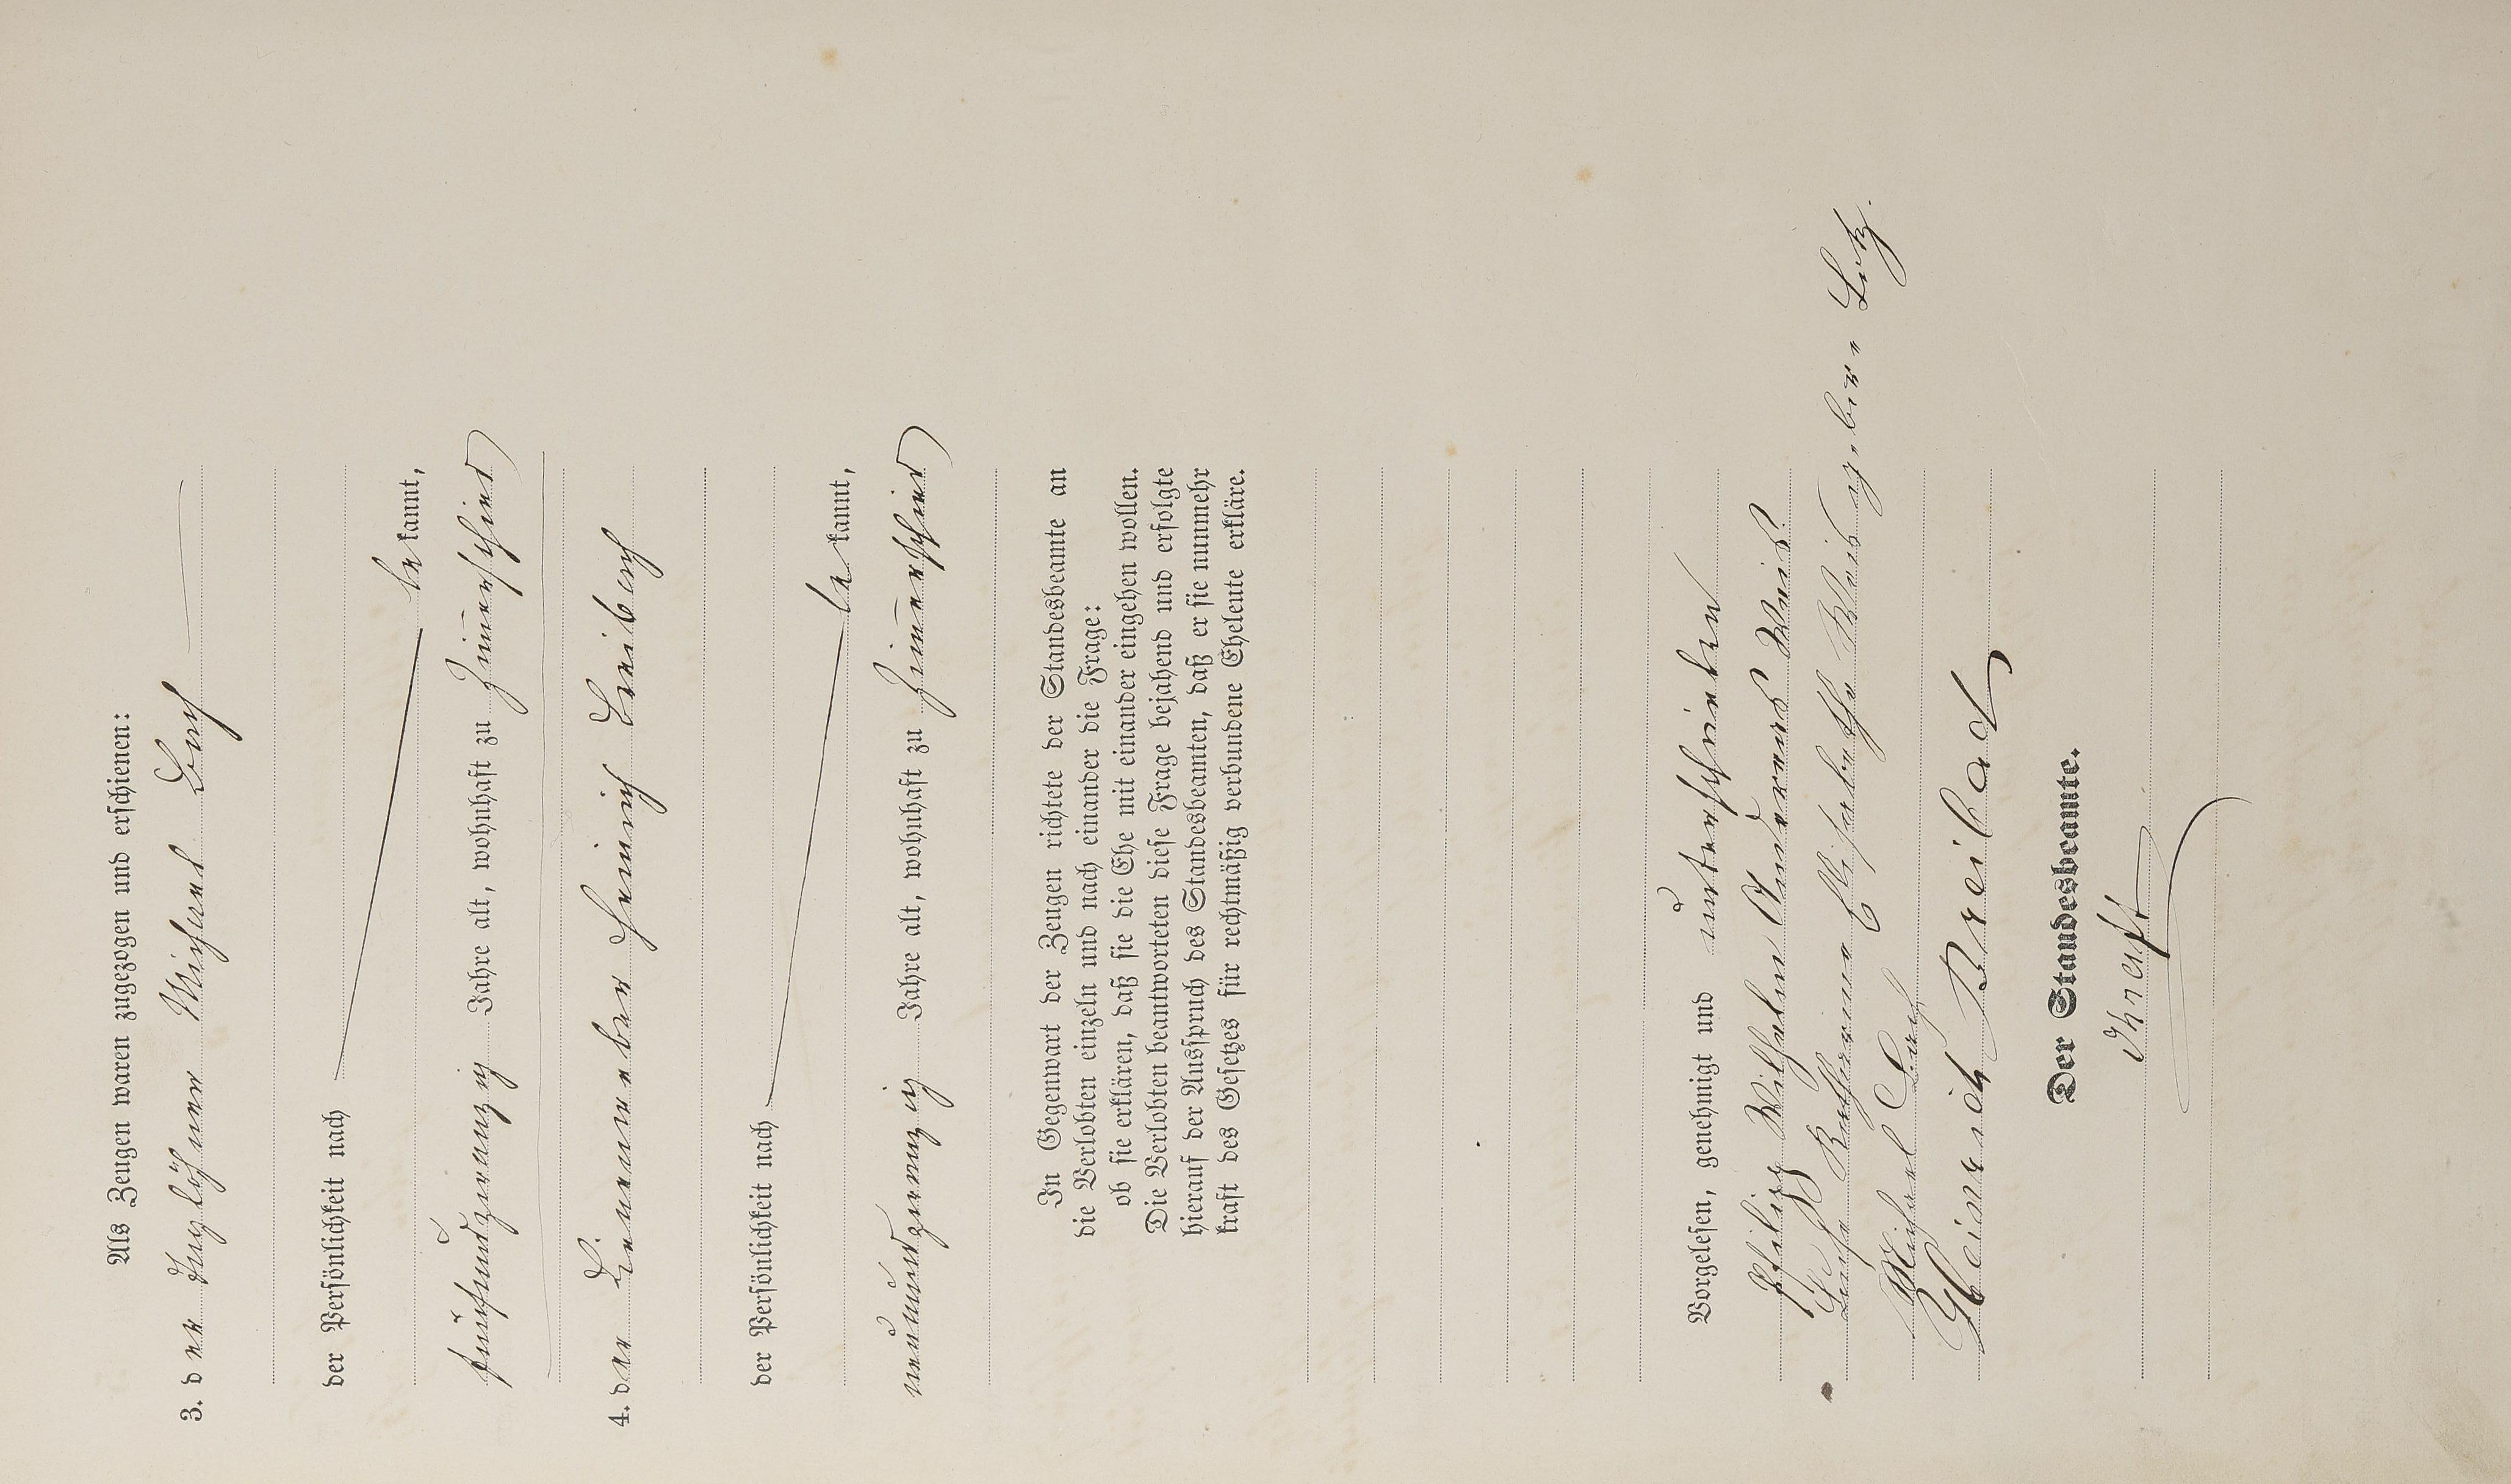 Als Zeugen waren zugezogen und erschienen:
3. der Taglöhner Michael Buch
der Persönlichkeit nach
bekannt,
fünfundzwanzig Jahre alt, wohnhaft zu Zimerschied
4. der Leinenweber Heinrich Breibach
der Persönlichkeit nach
bekannt,
neunundzwanzig Jahre alt, wohnhaft zu Zimerschied
In Gegenwart der Zeugen richtete der Standesbeamte an
die Verlobten einzeln und nach einander die Frage:
ob sie erklären, daß sie die Ehe mit einander eingehen wollen.
Die Verlobten beantworteten diese Frage bejahend und erfolgte
hierauf der Ausspruch des Standesbeamten, daß er sie nunmehr
kraft des Gesetzes für rechtmäßig verbundene Eheleute erkläre.
Vorgelesen, genehmigt und unterschrieben
Philipp Wilhelm Andereas Weis
Katherina Elisabethe Weis geborn
Michael Buch
Heinrich Breibach
Der Standesbeamte.